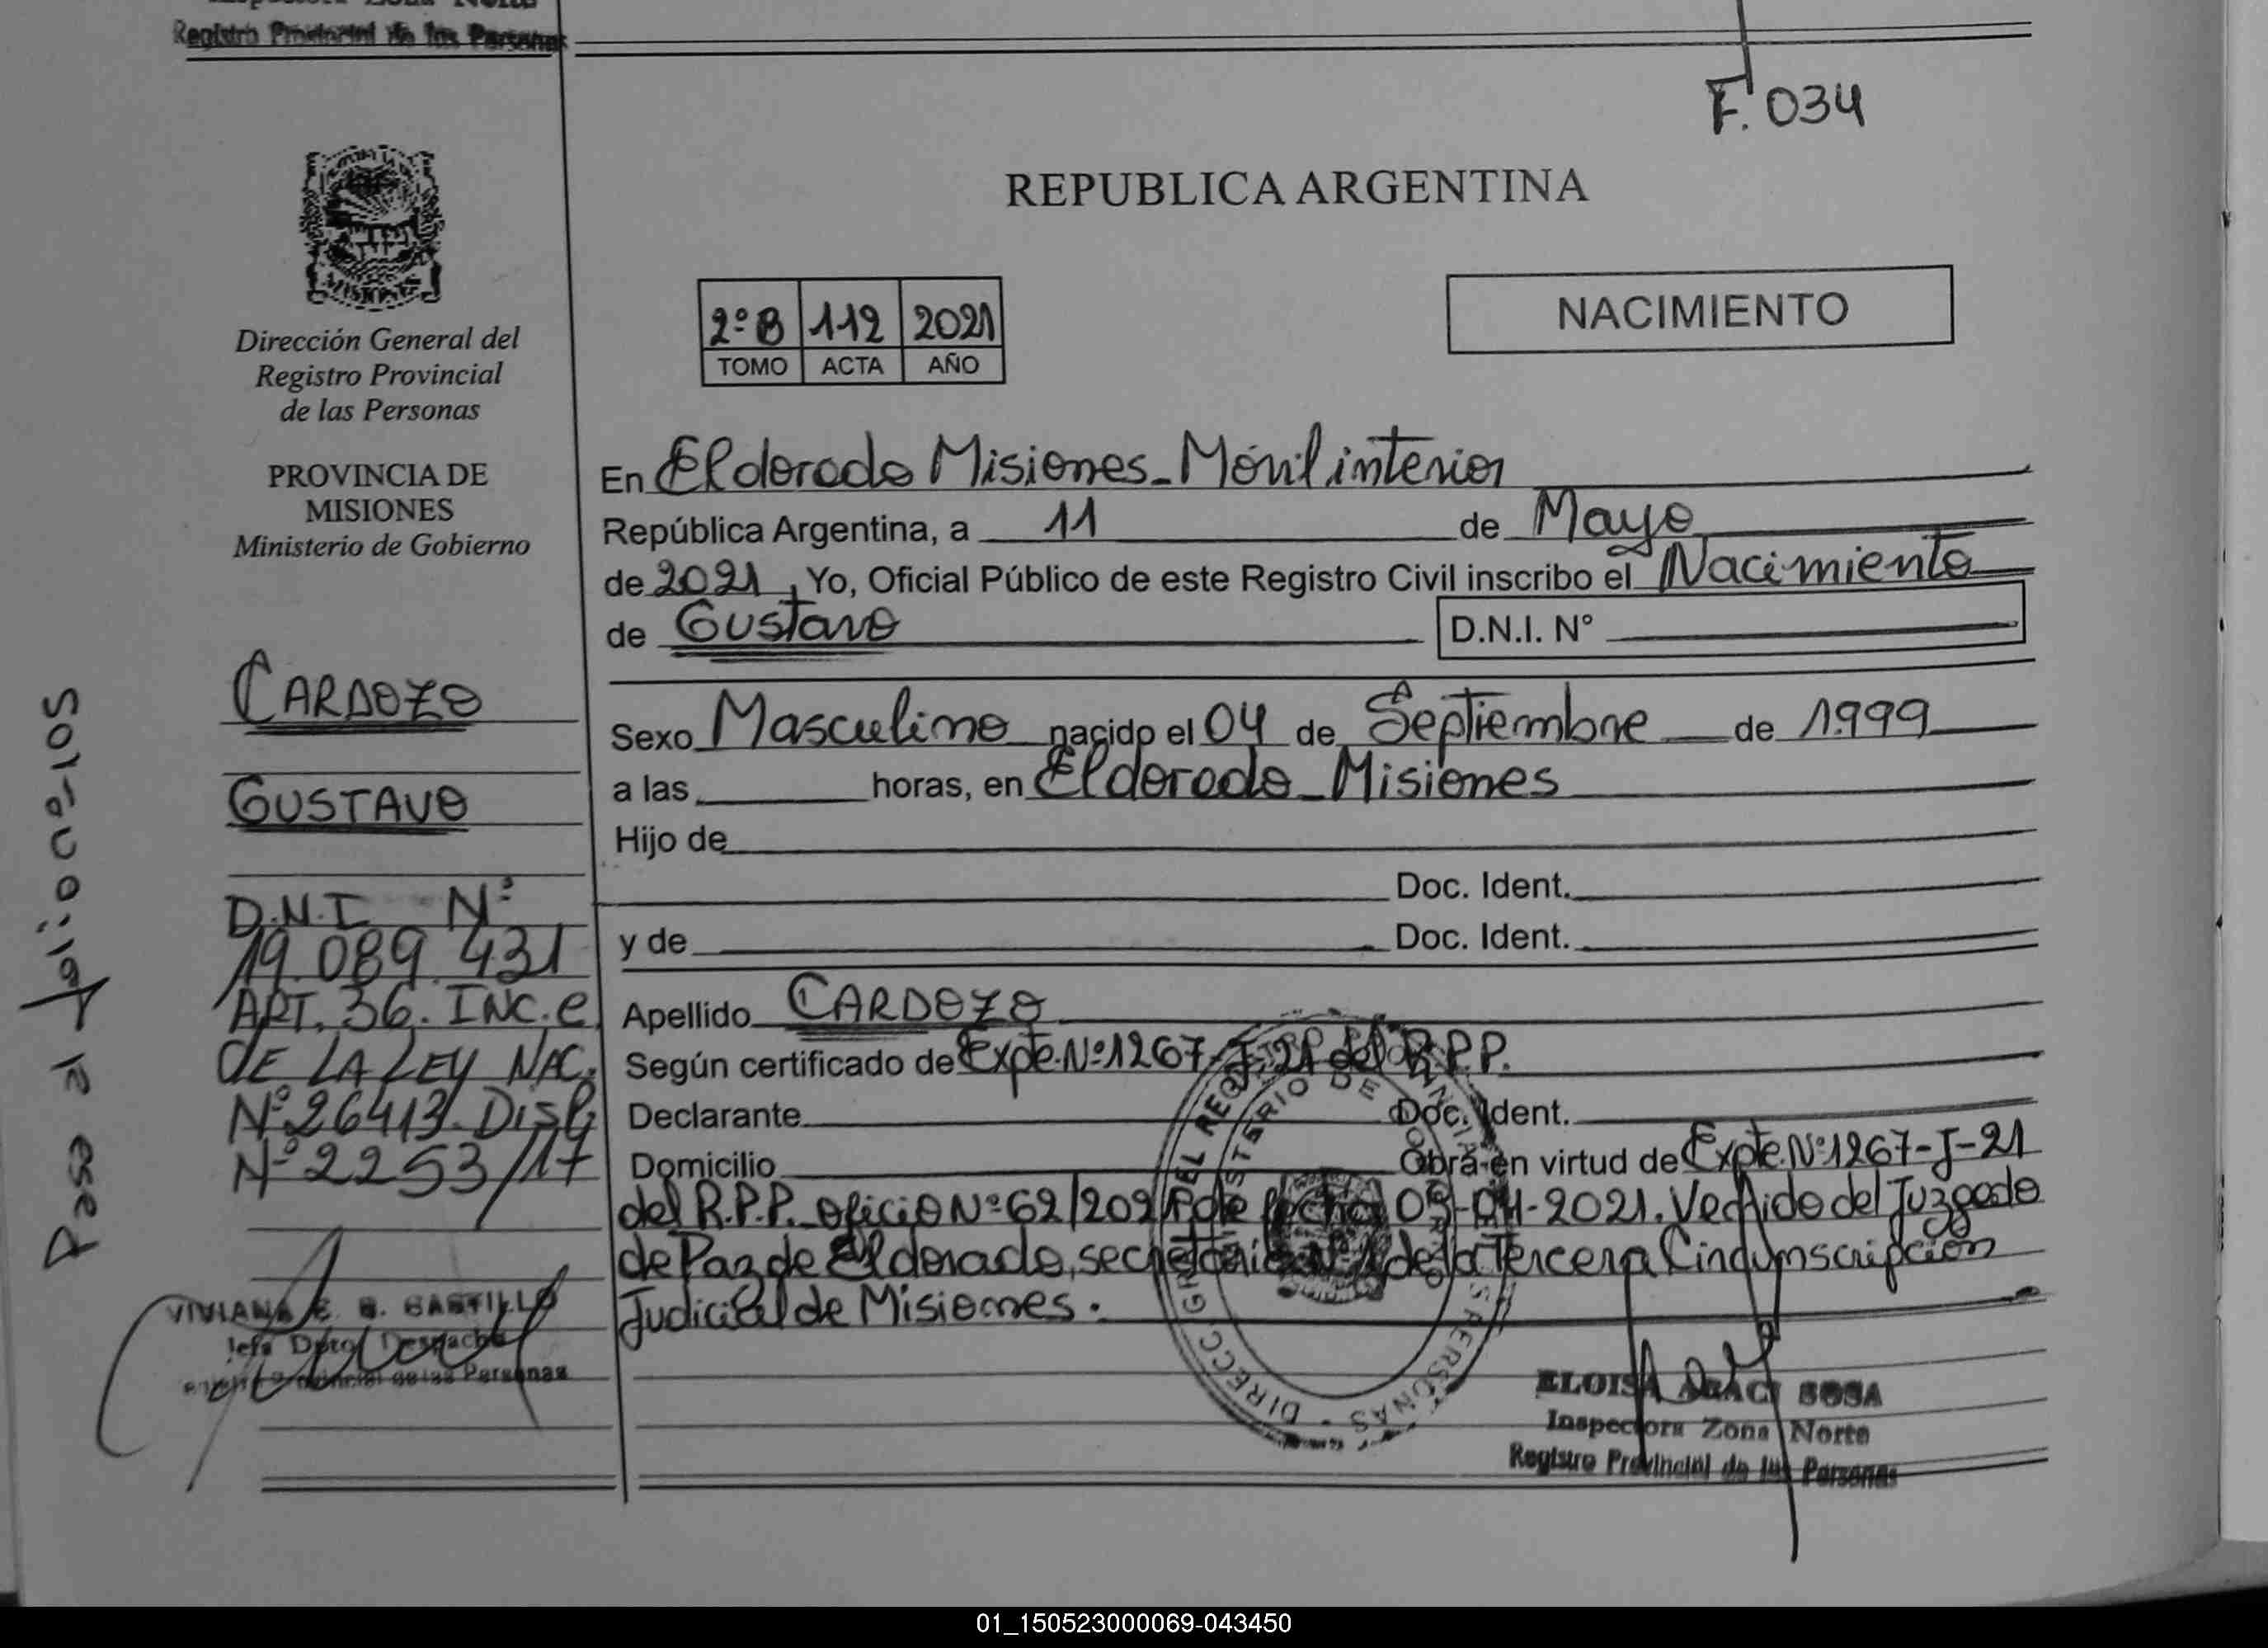 Registro Provincial de las Personas
F. 034
REPUBLICA ARGENTINA
NACIMIENTO
2º B 112 2021
TOMO ACTA AÑO
Dirección General del
Registro Provincial
de las Personas
PROVINCIA DE
MISIONES
Ministerio de Gobierno
CARDOZO
GUSTAVO
D.N.I. Nº
19.089.431
ART. 36. INC. e
DE LA LEY NAC.
Nº 26413. DISP.
Nº 2253/17
VIVIANA E. B. CASTILLO
Jefa Dpto Despacho
Provincial de las Personas
En Eldorado Misiones - Móvil interior
República Argentina, a 11 de Mayo
de 2021, Yo, Oficial Público de este Registro Civil inscribo el Nacimiento
de Gustavo D.N.I. Nº
Sexo Masculino nacido el 04 de Septiembre de 1.999
a las horas, en Eldorado - Misiones
Hijo de
Doc. Ident.
y de Doc. Ident.
Apellido CARDOZO
Según certificado de Expte. Nº 1267-J-21 del R.P.P.
Declarante Doc. Ident.
Domicilio Obra en virtud de Expte. Nº 1267-J-21
del R.P.P. oficio Nº 62/2021 de fecha 05-04-2021. Vertido del Juzgado
de Paz de Eldorado, secretaria Nº 1 de la Tercera Circunscripción
Judicial de Misiones.
ELOISA ARACI SOSA
Inspectora Zona Norte
Registro Provincial de las Personas
01_150523000069-043450